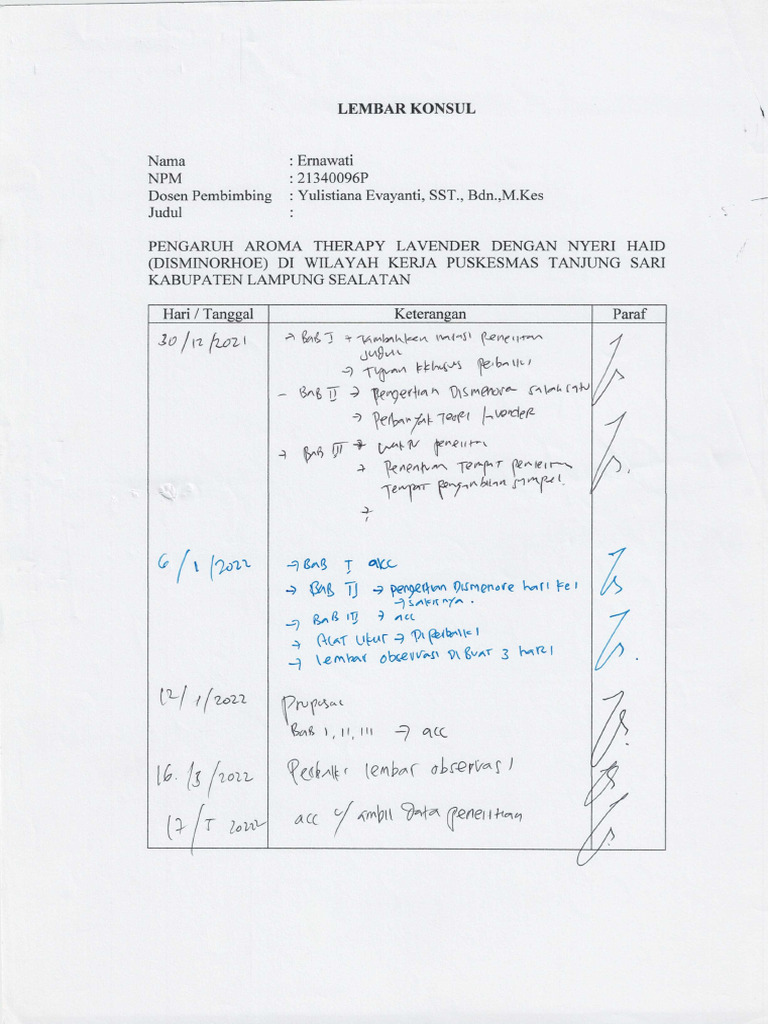 LEMBAR KONSUL
Nama : Ernawati
NPM : 21340096P
Dosen Pembimbing : Yulistiana Evayanti, SST., Bdn.,M.Kes
Judul :
PENGARUH AROMA THERAPY LAVENDER DENGAN NYERI HAID
(DISMINORHOE) DI WILAYAH KERJA PUSKESMAS TANJUNG SARI
KABUPATEN LAMPUNG SEALATAN
Hari / Tanggal Keterangan Paraf
30/12/2021 → BAB I → Tambahkan penelitian
Judul
→ Tujuan Khusus Perbaiki
- BAB II → Pengertian Dismenore salah satu
→ Perbanyak Teori Lavender
→ BAB III → waktu penelitian
→ Penentuan Tempat penelitian
Tempat pengambilan sampel.
→
6/1/2022 → BAB I acc
→ BAB II → pengertian Dismenore hari ke 1
→ sakitnya.
→ BAB III → acc
→ Alat Ukur → Diperbaiki
→ lembar observasi Dibuat 3 hari
12/1/2022 Proposal
BAB I, II, III → acc
16./3/2022 Perbaiki lembar observasi
17/5 2022 acc u/ ambil data penelitian